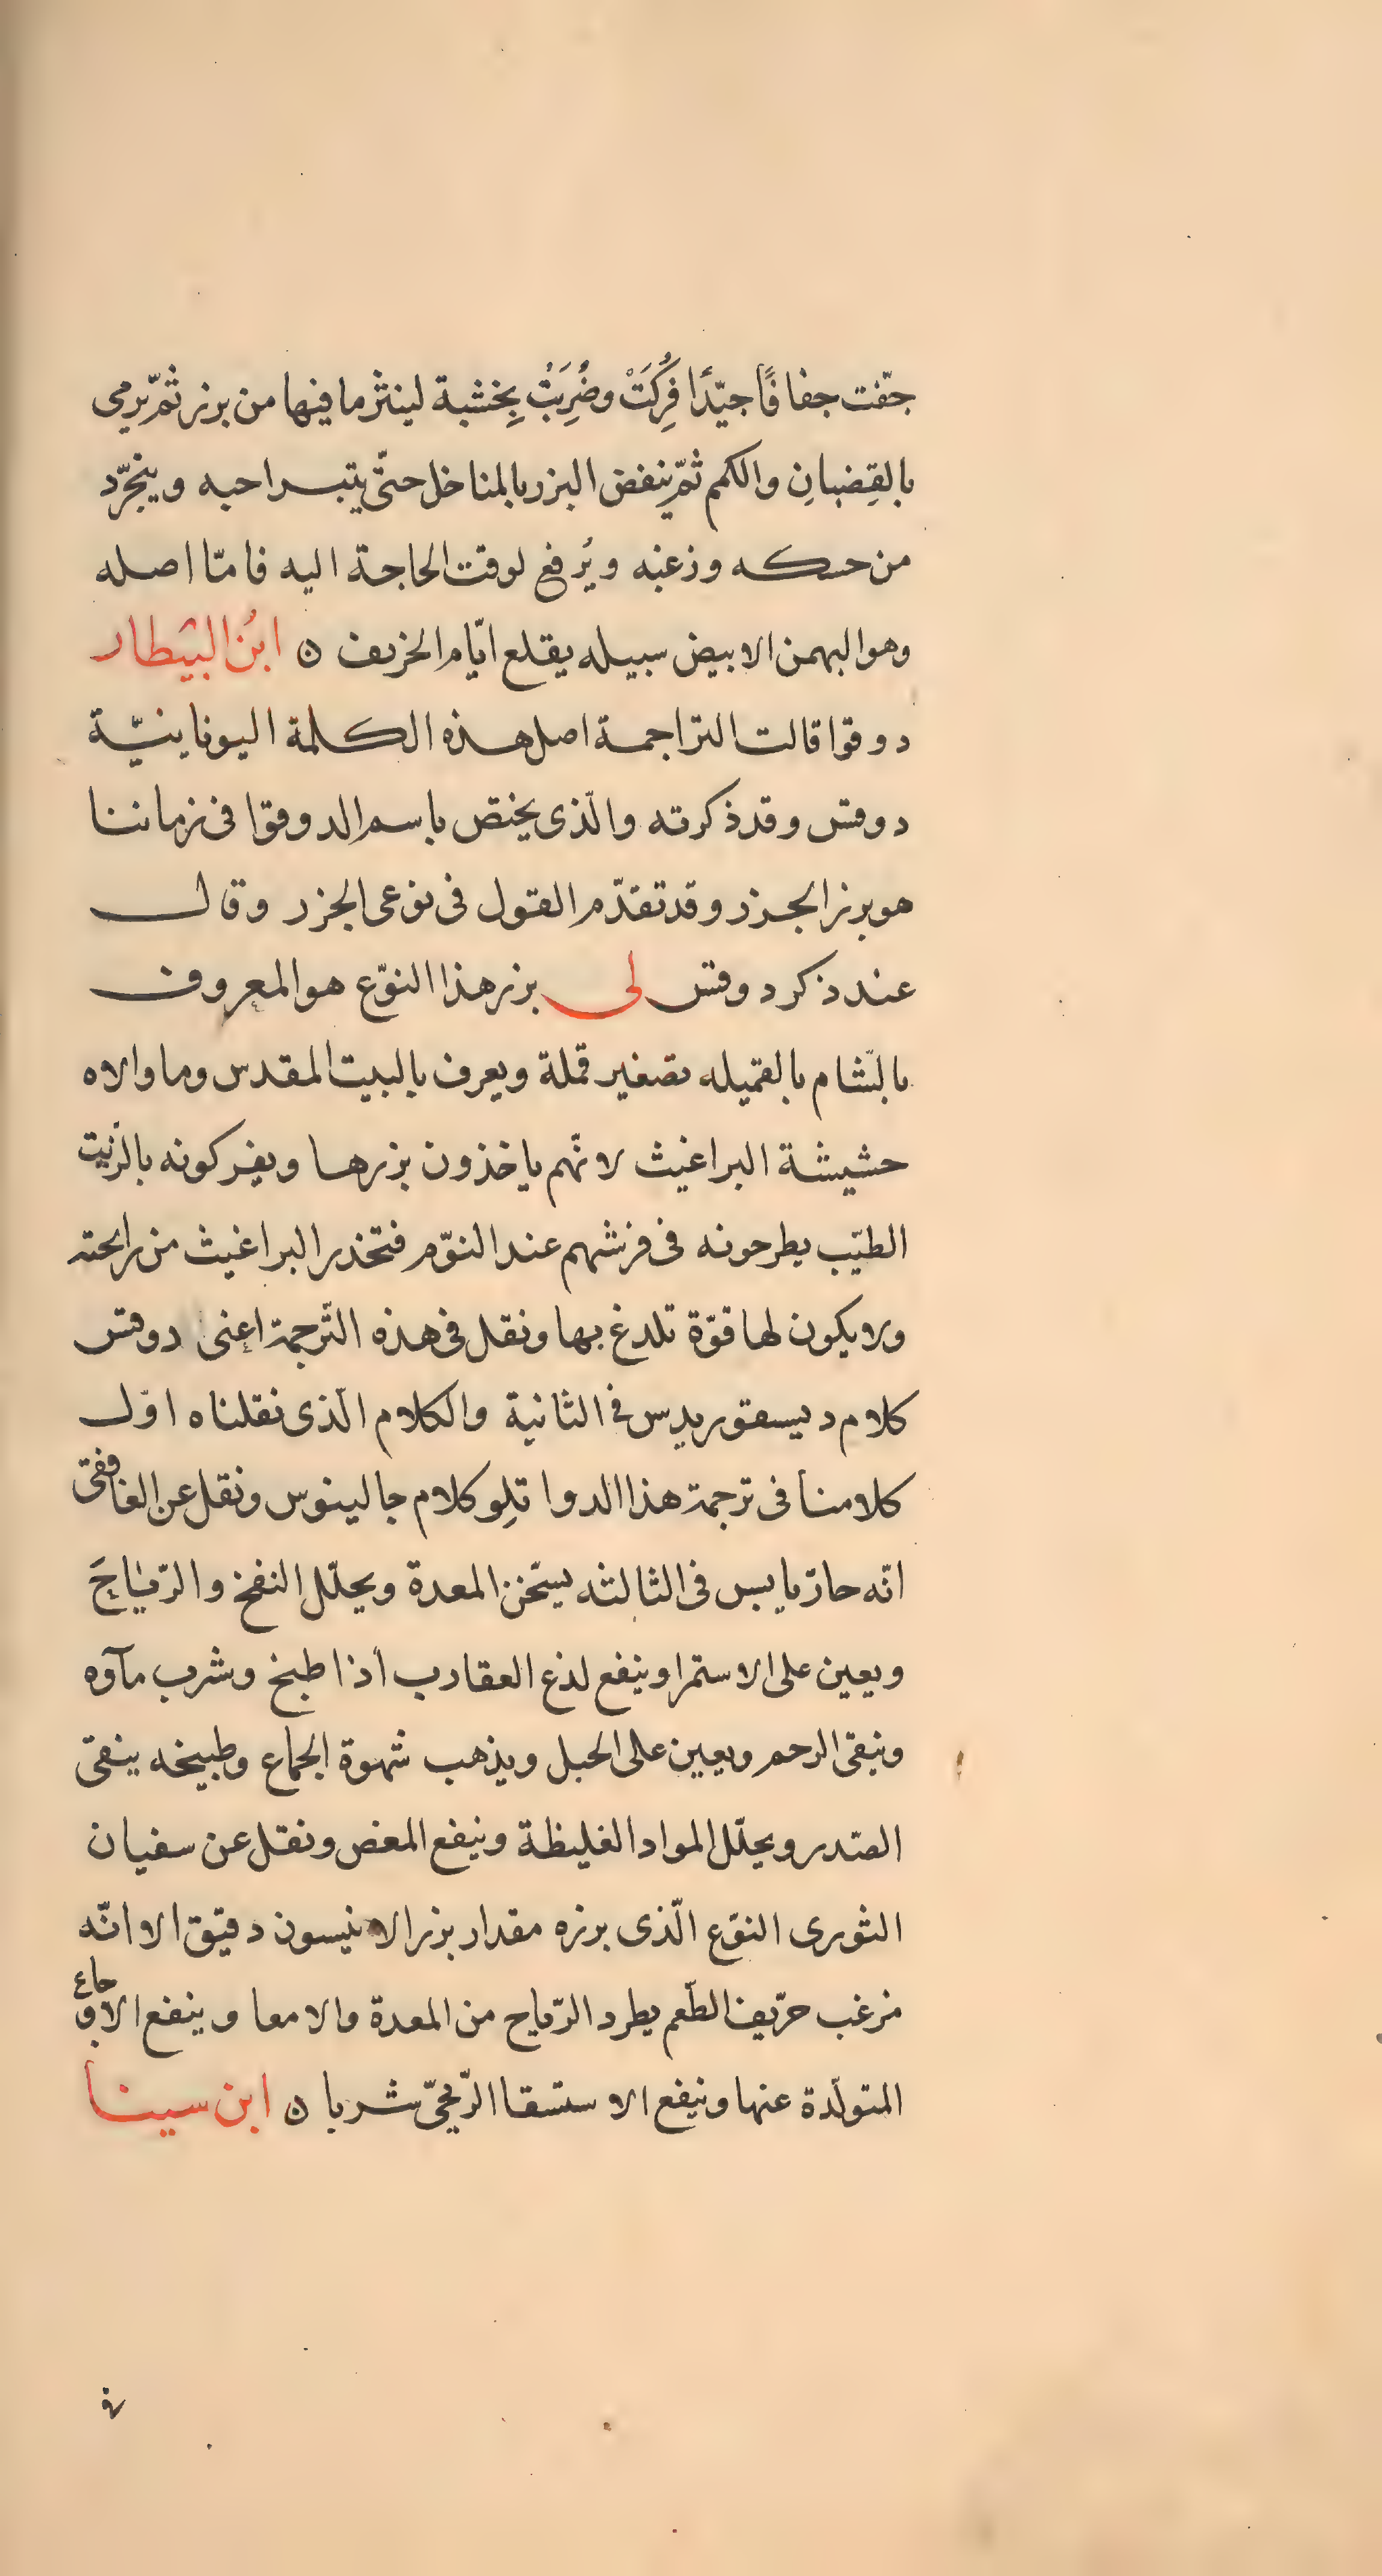 جفّت جفافًا جيّدًا فُرِكَتْ وضُرِبَتْ بِخشبة لينثر ما فيها من بزر ثمّ يرمى
بالقِضبانِ والكمم ثمّ ينفض البزر بالمناخل حتّى يتبرا حبه ويتجرّد
من حسكه وزغبه ويُرفع لوقت الحاجة اليه فامّا اصله
وهو البهمن الابيض سبيله يقلع ايّام الخريف ن ابنُ البيطار
دوقوا قالت التراجمة اصل هذه الكلمة اليونانيّة
دوقس وقد ذكرته والّذى يختصّ باسم الدوقوا فى زماننا
هو بزر الجزر وقد تقدّم القول فى نوعى الجزر وقال
عند ذكر دوقس لى بزر هذا النوّع هو المعروف
بالشّام بالقميله تصغير قملة ويعرف بالبيت المقدس وما والاه
حشيشة البراغيث لانّهم ياخذون بزرها ويفركونه بالزّيت
الطيّب يطرحونه فى فرشهم عند النوّم فتخذر البراغيث من رايحته
ولا يكون لها قوّة تلدغ بها ونقل فى هذه التّرجمة اعنى دوقس
كلام ديسقوريدس فى الثانية والكلام الّذى نقلناه اوّل
كلامنا فى ترجمة هذا الدوا تلِو كلام جالينوس ونقل عن الغافقى
انّه حارّ يابس فى الثالثه يسّخن المعدة ويحلّل النفخ والرّيَاحَ
ويعين على الاستمرا وينفع لذع العقارب أذا طبخ وشرب مآوه
وينقى الرحم ويعين على الحبل ويذهب شهوة الجماع وطبيخه ينقى
الصّدر ويحلّل المواد الغليظة وينفع المغص ونقل عن سفيان
الثورى النوّع الّذى بزره مقدار بزر الانيسون دقيق الا انّه
مزغب حرّيف الطّعم يطرد الرّياح من المعدة والامعا وينفع الاوجاع
المتولّدة عنها وينفع الاستسقا الرّيحىّ شربا ن ابن سينا